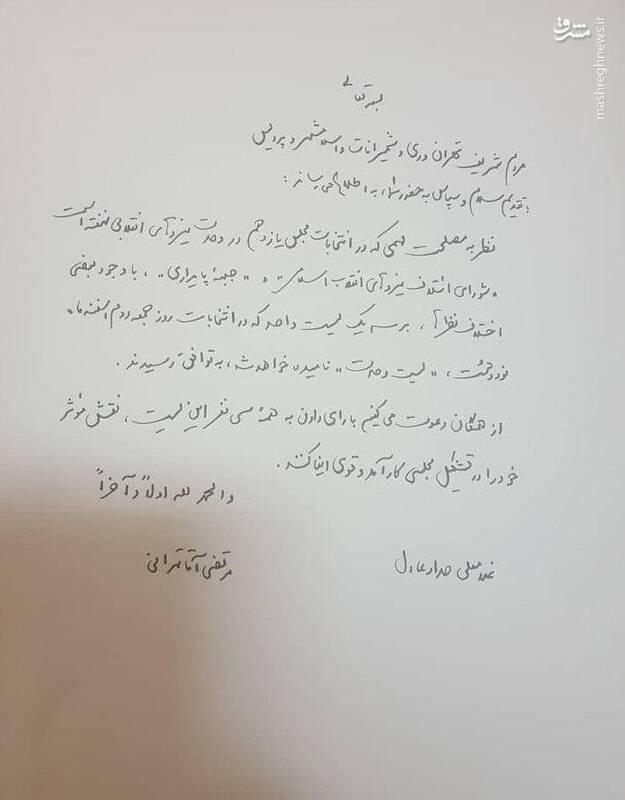 بسمه تعالی
مردم شریف تهران و ری و شمیرانات و اسلامشهر و پردیس
با تقدیم سلام و سپاس به حضور شما، به اطلاع می‌رساند:
نظر به مصلحت مهمی که در انتخابات مجلس یازدهم در وحدت نیروهای انقلابی نهفته است
«شورای ائتلاف نیروهای انقلاب اسلامی» و «جبهۀ پایداری»، با وجود بعضی
اختلاف نظرها، بر سر یک لیست واحد که در انتخابات روز جمعه دوم اسفندماه
نود و هشت، «لیست وحدت» نامیده خواهد شد، به توافق رسیدند.
از همگان دعوت می‌کنیم با رای دادن به همۀ سی نفر این لیست، نقش مؤثر
خود را در تشکیل مجلسی کارآمد و قوی ایفا کنند.
والحمد لله اولاً و آخراً
غلامعلی حداد عادل
مرتضی آقاتهرانی
مشرق
mashreghnews.ir